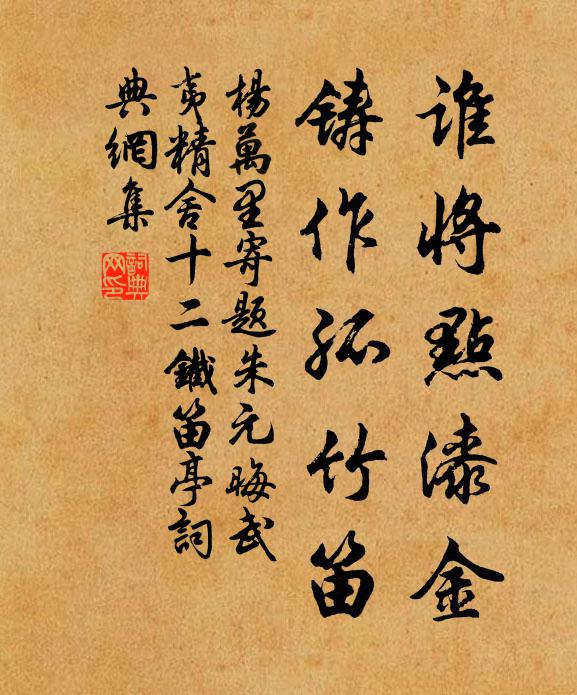 谁將點漆金
鑄作孤竹笛
楊萬里寄題朱元晦武
夷精舍十二鐵笛亭詞
典網集
詞典
网印